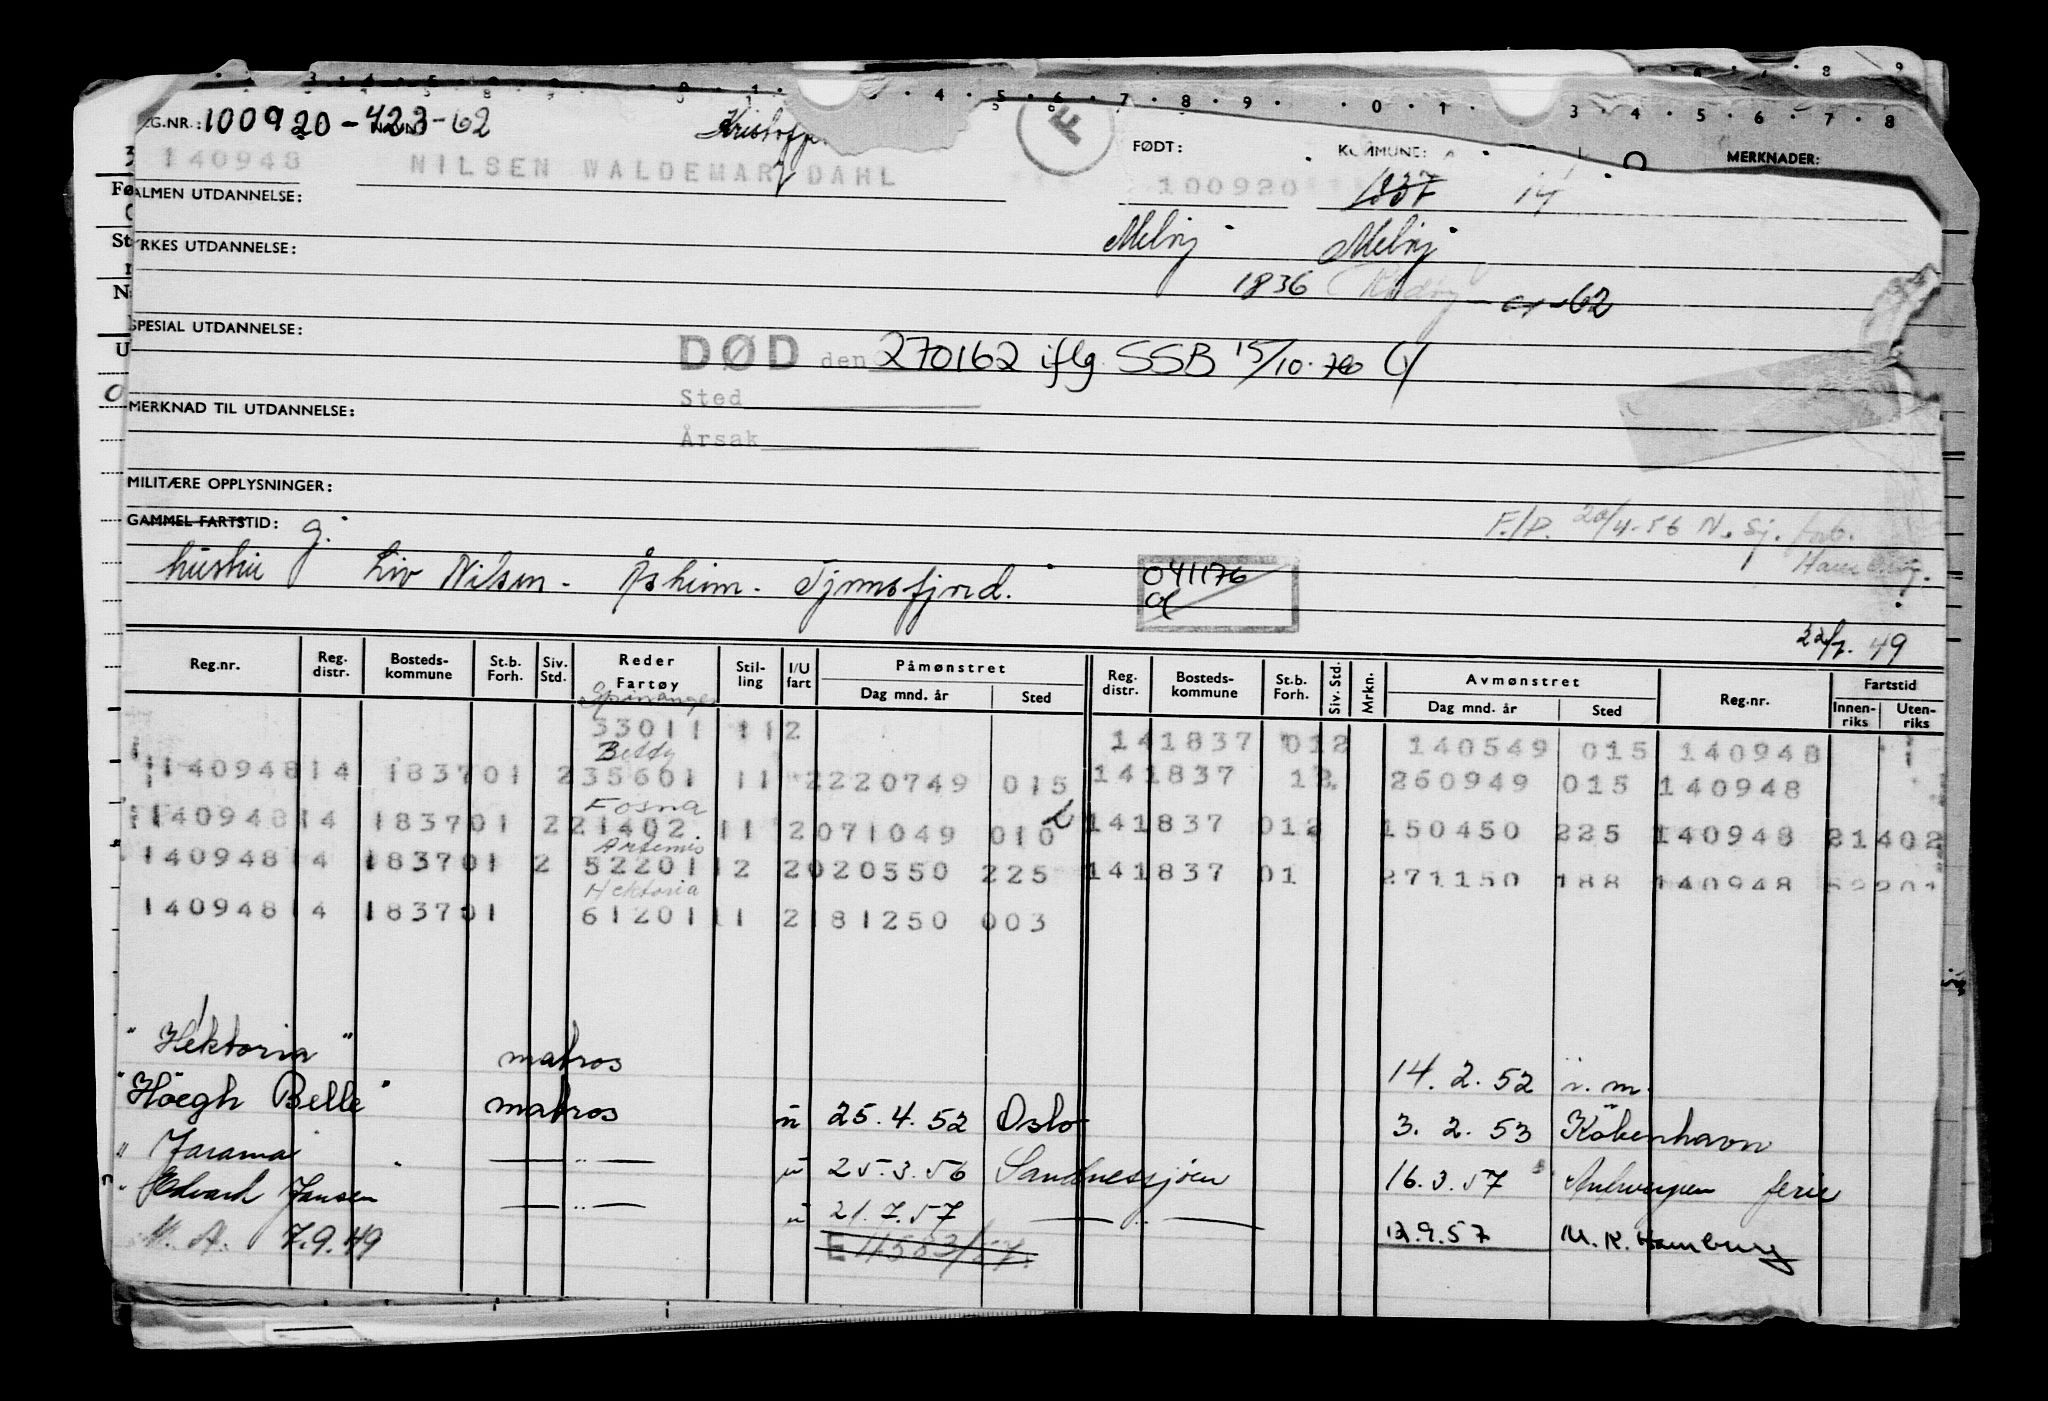 EG.NR.: 100920-423-62 Kristoffer F FØDT: KOMMUNE: MERKNADER:
140948 NILSEN WALDEMAR DAHL 100920 1837 14
ALMEN UTDANNELSE:
YRKES UTDANNELSE: Meløy Meløy
1836 Rødøy -62
SPESIAL UTDANNELSE:
DØD den 270162 iflg. SSB 15/10.70
Sted
MERKNAD TIL UTDANNELSE:
Årsak
MILITÆRE OPPLYSNINGER:
GAMMEL FARTSTID: g. F./P. 20/4-56 N. Sj. forb.
hustru Liv Nilsen - Åsheim - Tjonsfjord. 041176 Hamburg.
22/7. 49
Reg.nr. Reg. distr. Bosteds-kommune St.b. Forh. Siv. Std. Reder Fartøy Stil-ling I/U fart Påmønstret Dag mnd. år Sted Reg. distr. Bosteds-kommune St.b. Forh. Siv. Std. Mrkn. Avmønstret Dag mnd. år Sted Reg.nr. Fartstid Innen-riks Uten-riks
Spinanger
53011 112 141837 012 140549 015 140948
Beddy
140948 14 1837 01 2 35601 11 2 220749 015 141837 12 260949 015 140948
Fosna
140948 14 1837 01 2 21402 11 2 071049 010 141837 012 150450 225 140948 21402
Artemis
140948 14 1837 01 2 52201 12 2 020550 225 141837 01 271150 188 140948 52201
Hektoria
140948 14 1837 01 61201 11 2 181250 003
" Hektoria " matros 14. 2. 52 i. m.
"Höegh Belle" matros u 25. 4. 52 Oslo 3. 2. 53 København
" Jarama — " — u 25. 3. 56 Sandnessjøen 16. 3. 57 Antwerpen ferie
" Edvard Jansen — " — u 21. 7. 57 — " — 12.9.57 M. K. Hamburg
M. A. 7.9.49 E 4583/57.